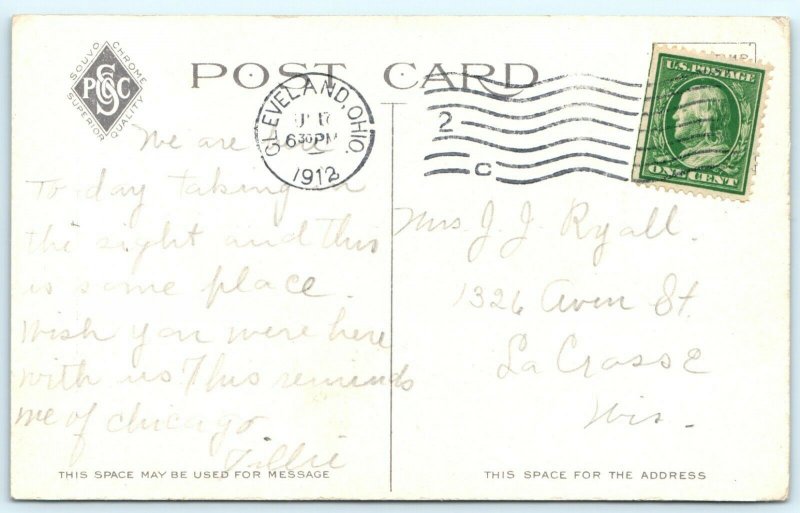 SOUVOCHROME
SUPERIOR QUALITY
PSNC
POST CARD
CLEVELAND, OHIO.
17
6 30 PM
1912
2
C
U.S. POSTAGE
ONE CENT
We are here
To day taking in
the sight and this
is some place.
Wish you were here
with us This reminds
me of chicago
Tillie
Mrs J. J. Ryall.
1326 Avon St.
La Crosse
Wis.
THIS SPACE MAY BE USED FOR MESSAGE
THIS SPACE FOR THE ADDRESS